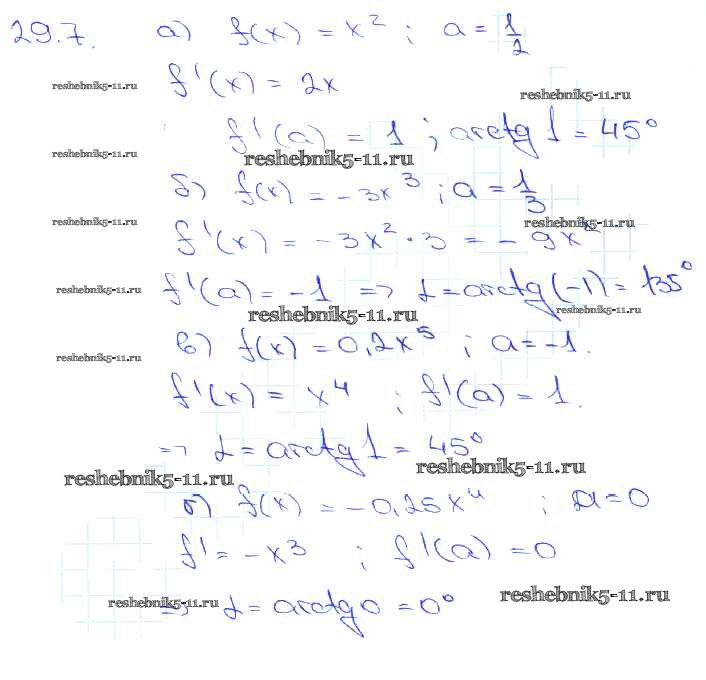 29.7. а) f(x) = x²; a = 1/2
f'(x) = 2x
reshebnik5-11.ru
reshebnik5-11.ru
f'(a) = 1; arctg 1 = 45°
reshebnik5-11.ru
reshebnik5-11.ru
б) f(x) = -3x³; a = 1/3
reshebnik5-11.ru
reshebnik5-11.ru
f'(x) = -3x² · 3 = -9x²
f'(a) = -1 => α = arctg(-1) = 135°
reshebnik5-11.ru
reshebnik5-11.ru
reshebnik5-11.ru
в) f(x) = 0,2x⁵; a = -1.
reshebnik5-11.ru
f'(x) = x⁴; f'(a) = 1.
=> α = arctg 1 = 45°
reshebnik5-11.ru
reshebnik5-11.ru
г) f(x) = -0,25x⁴; a = 0
f' = -x³; f'(a) = 0
=> α = arctg 0 = 0°
reshebnik5-11.ru
reshebnik5-11.ru